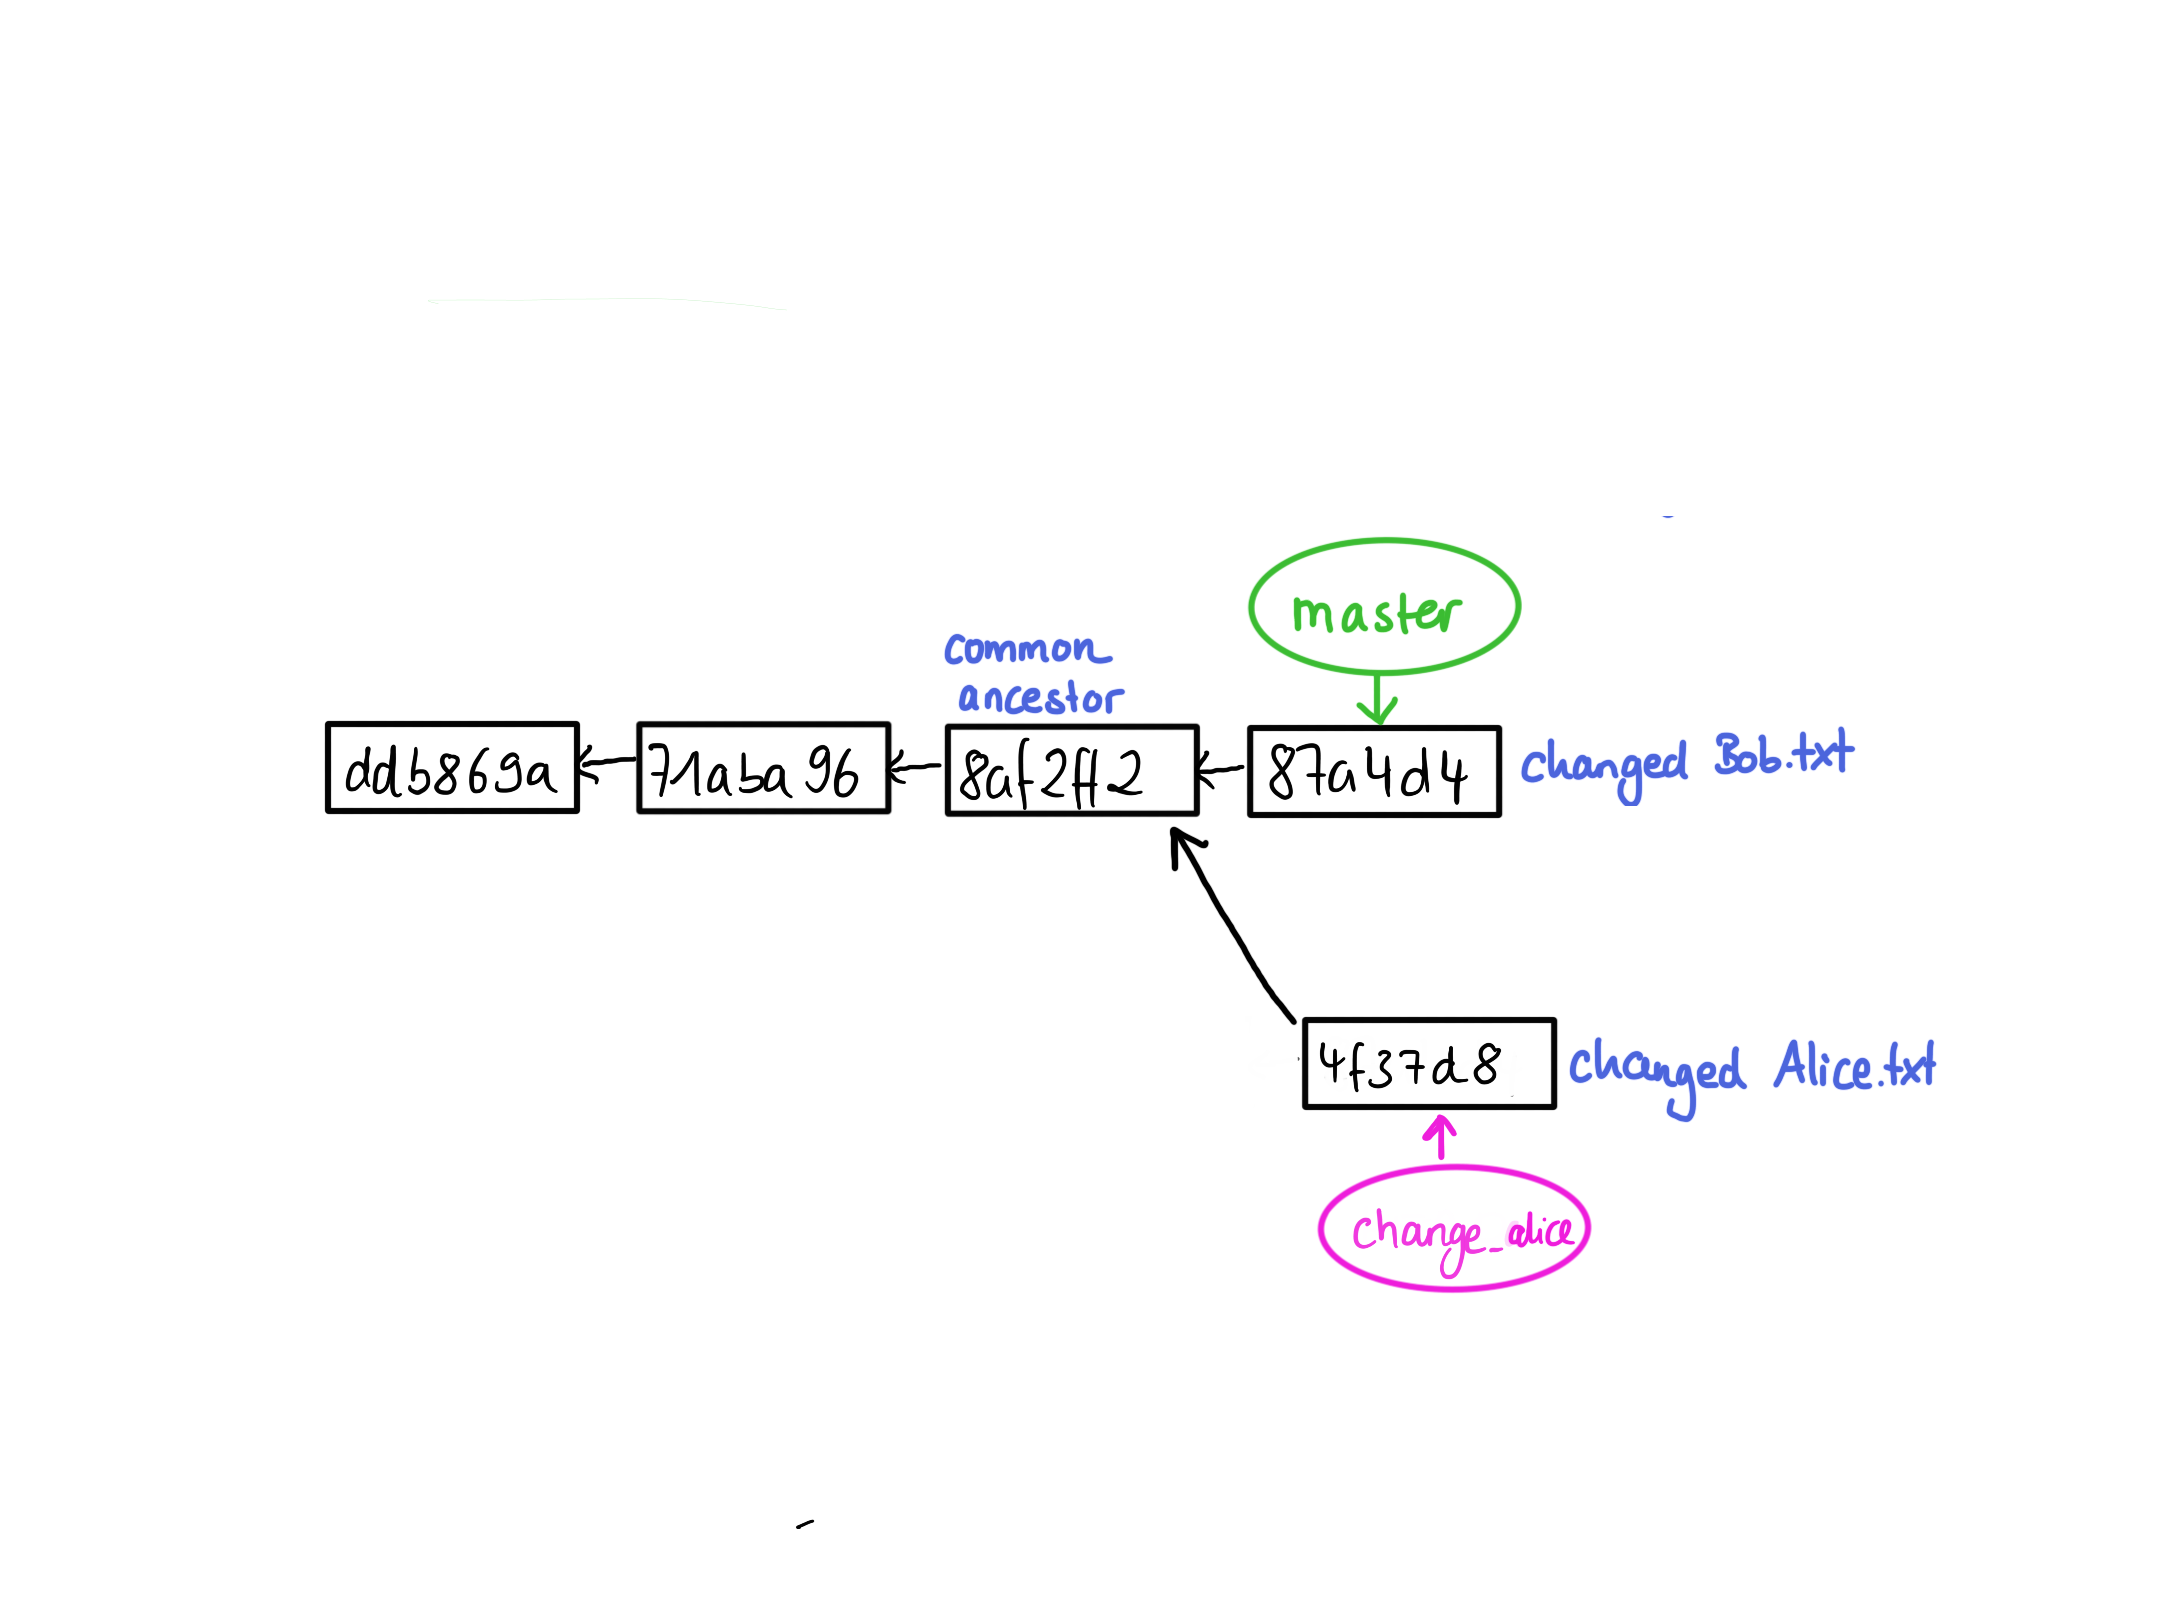 master
common
ancestor
ddb869a
71aba96
8af2ff2
87a4d4
changed Bob.txt
4f37d8
changed Alice.txt
change_alice